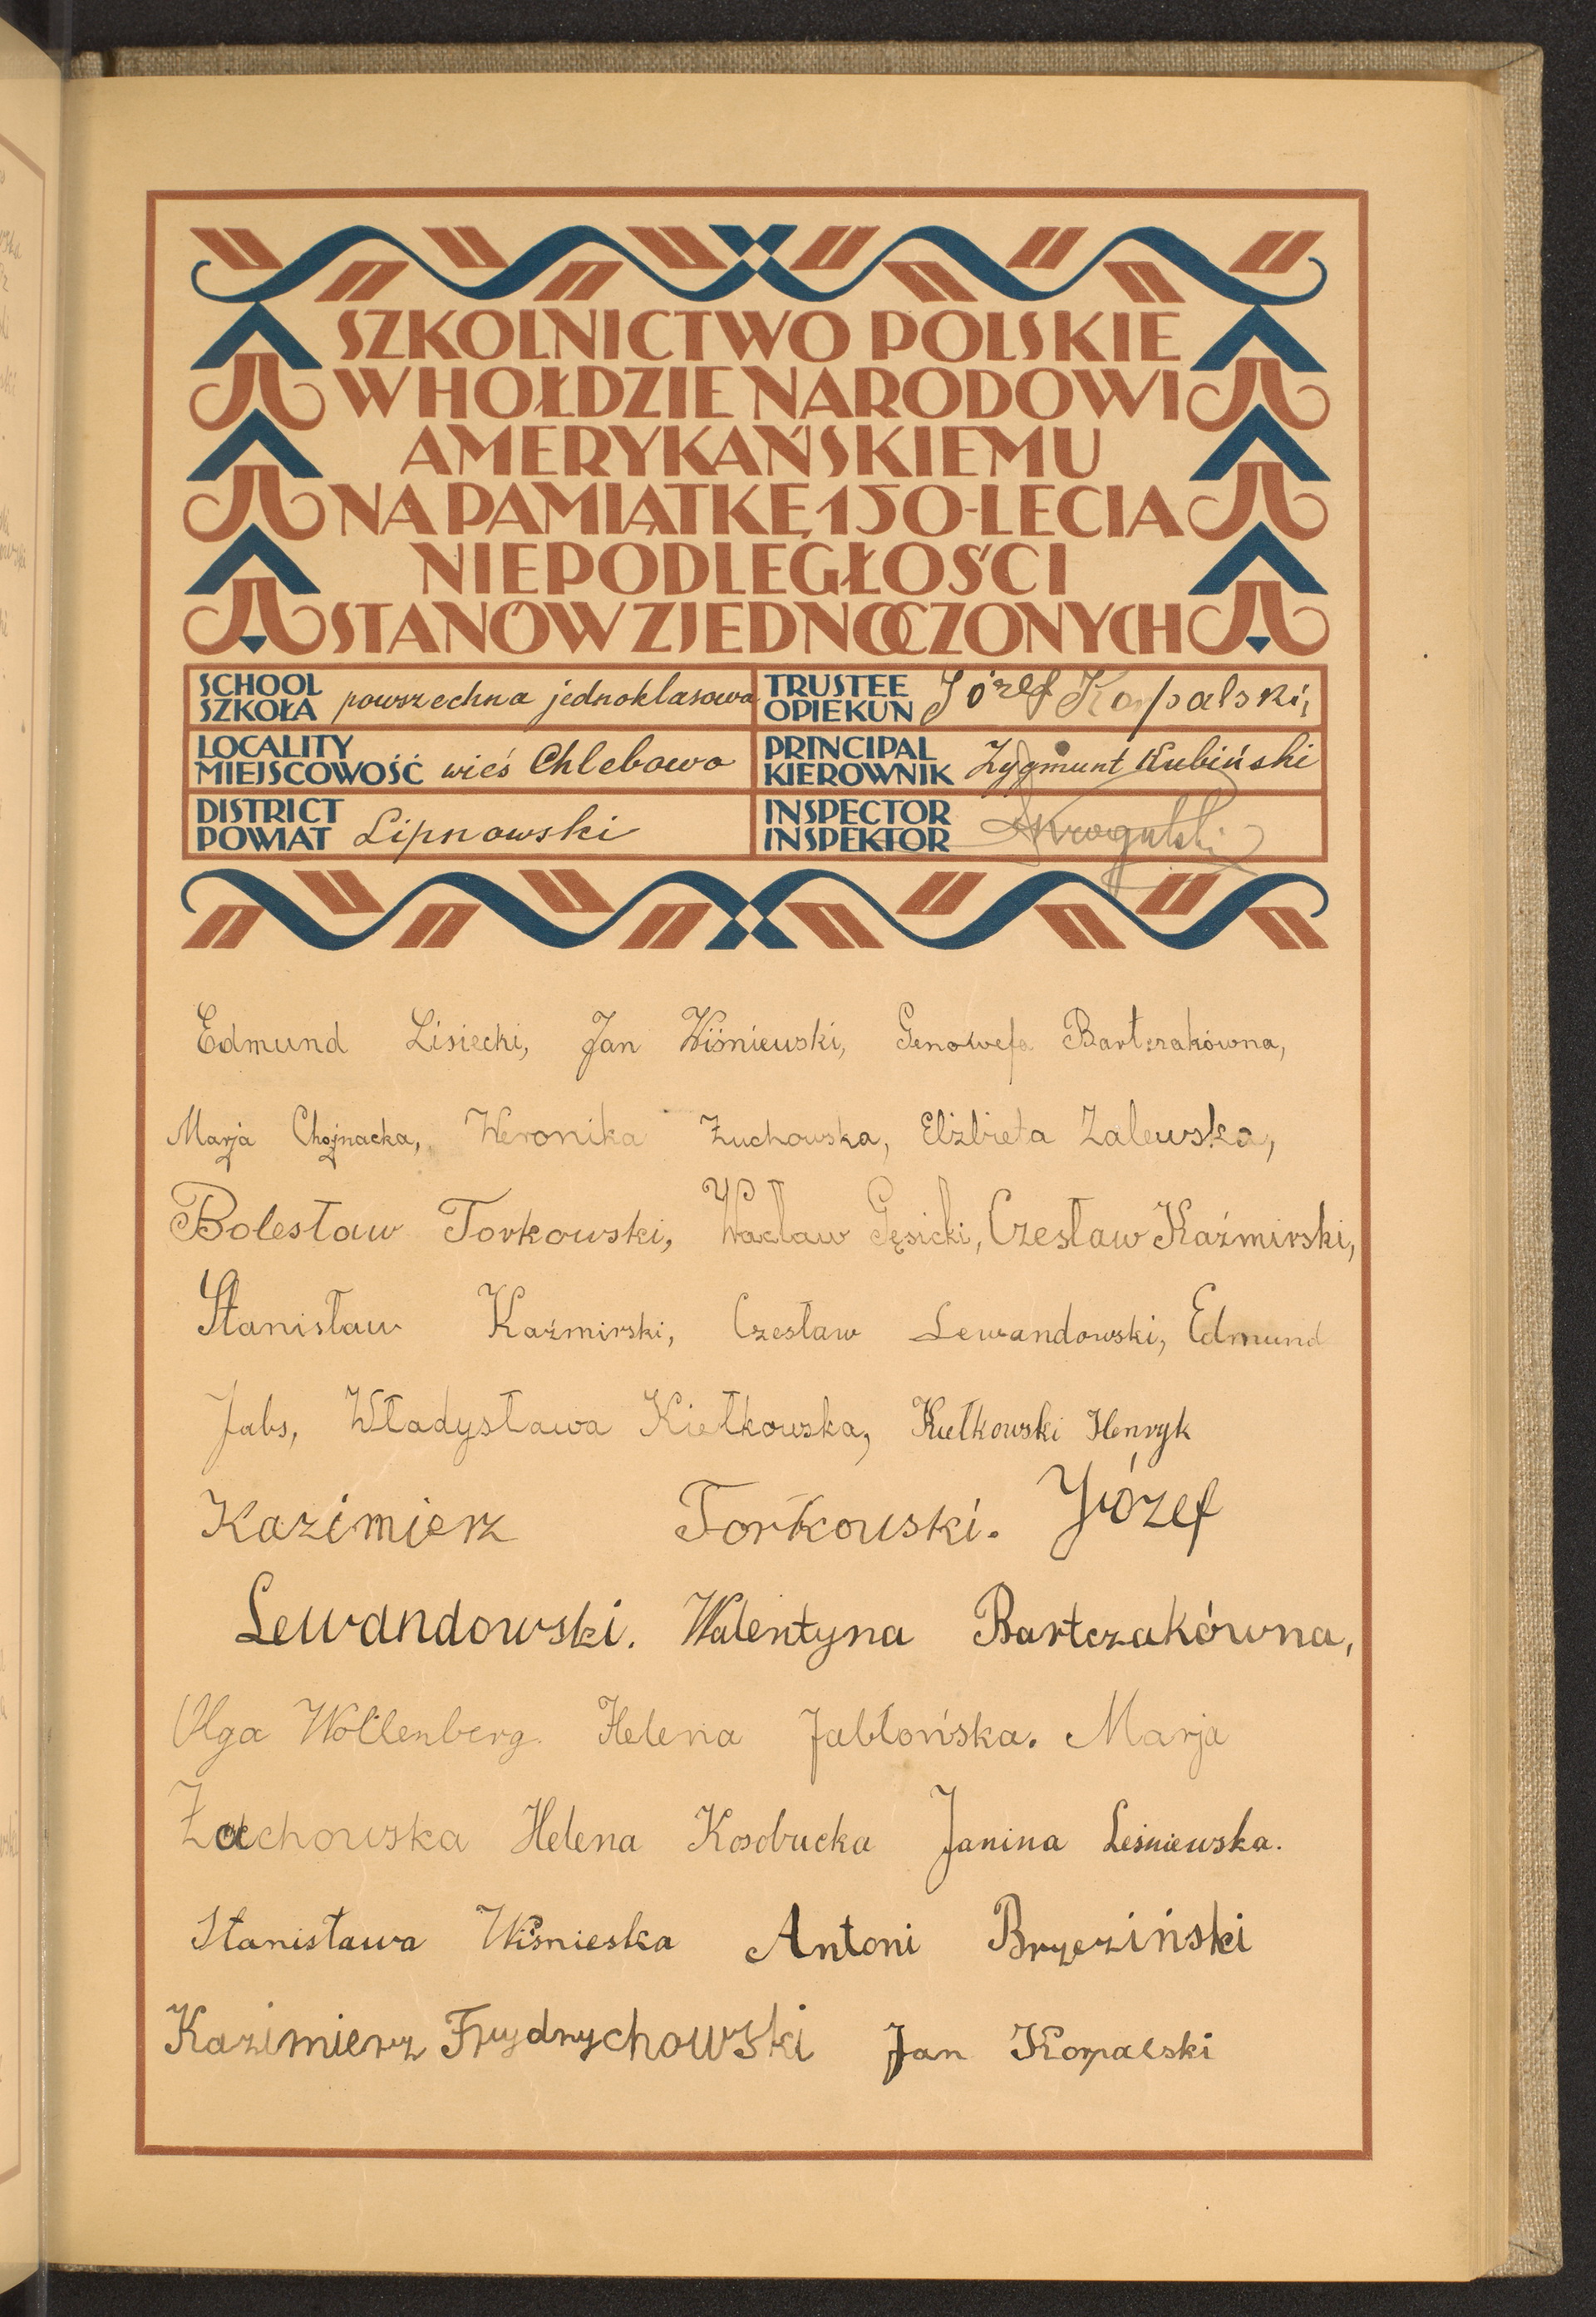 SZKOLNICTWO POLSKIE
W HOŁDZIE NARODOWI
AMERYKAŃSKIEMU
NA PAMIĄTKĘ 150-LECIA
NIEPODLEGŁOŚCI
STANÓW ZJEDNOCZONYCH
SCHOOL
SZKOŁA powszechna jednoklasowa
TRUSTEE
OPIEKUN Józef Kopalski,
LOCALITY
MIEJSCOWOŚĆ wieś Chlebowo
PRINCIPAL
KIEROWNIK Zygmunt Kubiński
DISTRICT
POWIAT Lipnowski
INSPECTOR
INSPEKTOR
Edmund Lisiecki, Jan Wiśniewski, Genowefa Bartczakówna,
Marja Chojnacka, Weronika Żuchowska, Elżbieta Zalewska,
Bolesław Torkowski, Wacław Gęsicki, Czesław Kaźmirski,
Stanisław Kaźmirski, Czesław Lewandowski, Edmund
Jabs, Władysława Kiełkowska, Kiełkowski Henryk
Kazimierz Torkowski. Józef
Lewandowski. Walentyna Bartczakówna,
Olga Wollenberg. Helena Jabłońska. Marja
Żuchowska Helena Kosobucka Janina Leśniewska.
Stanisława Wiśnieska Antoni Brzeziński
Kazimierz Frydrychowski Jan Kopalski